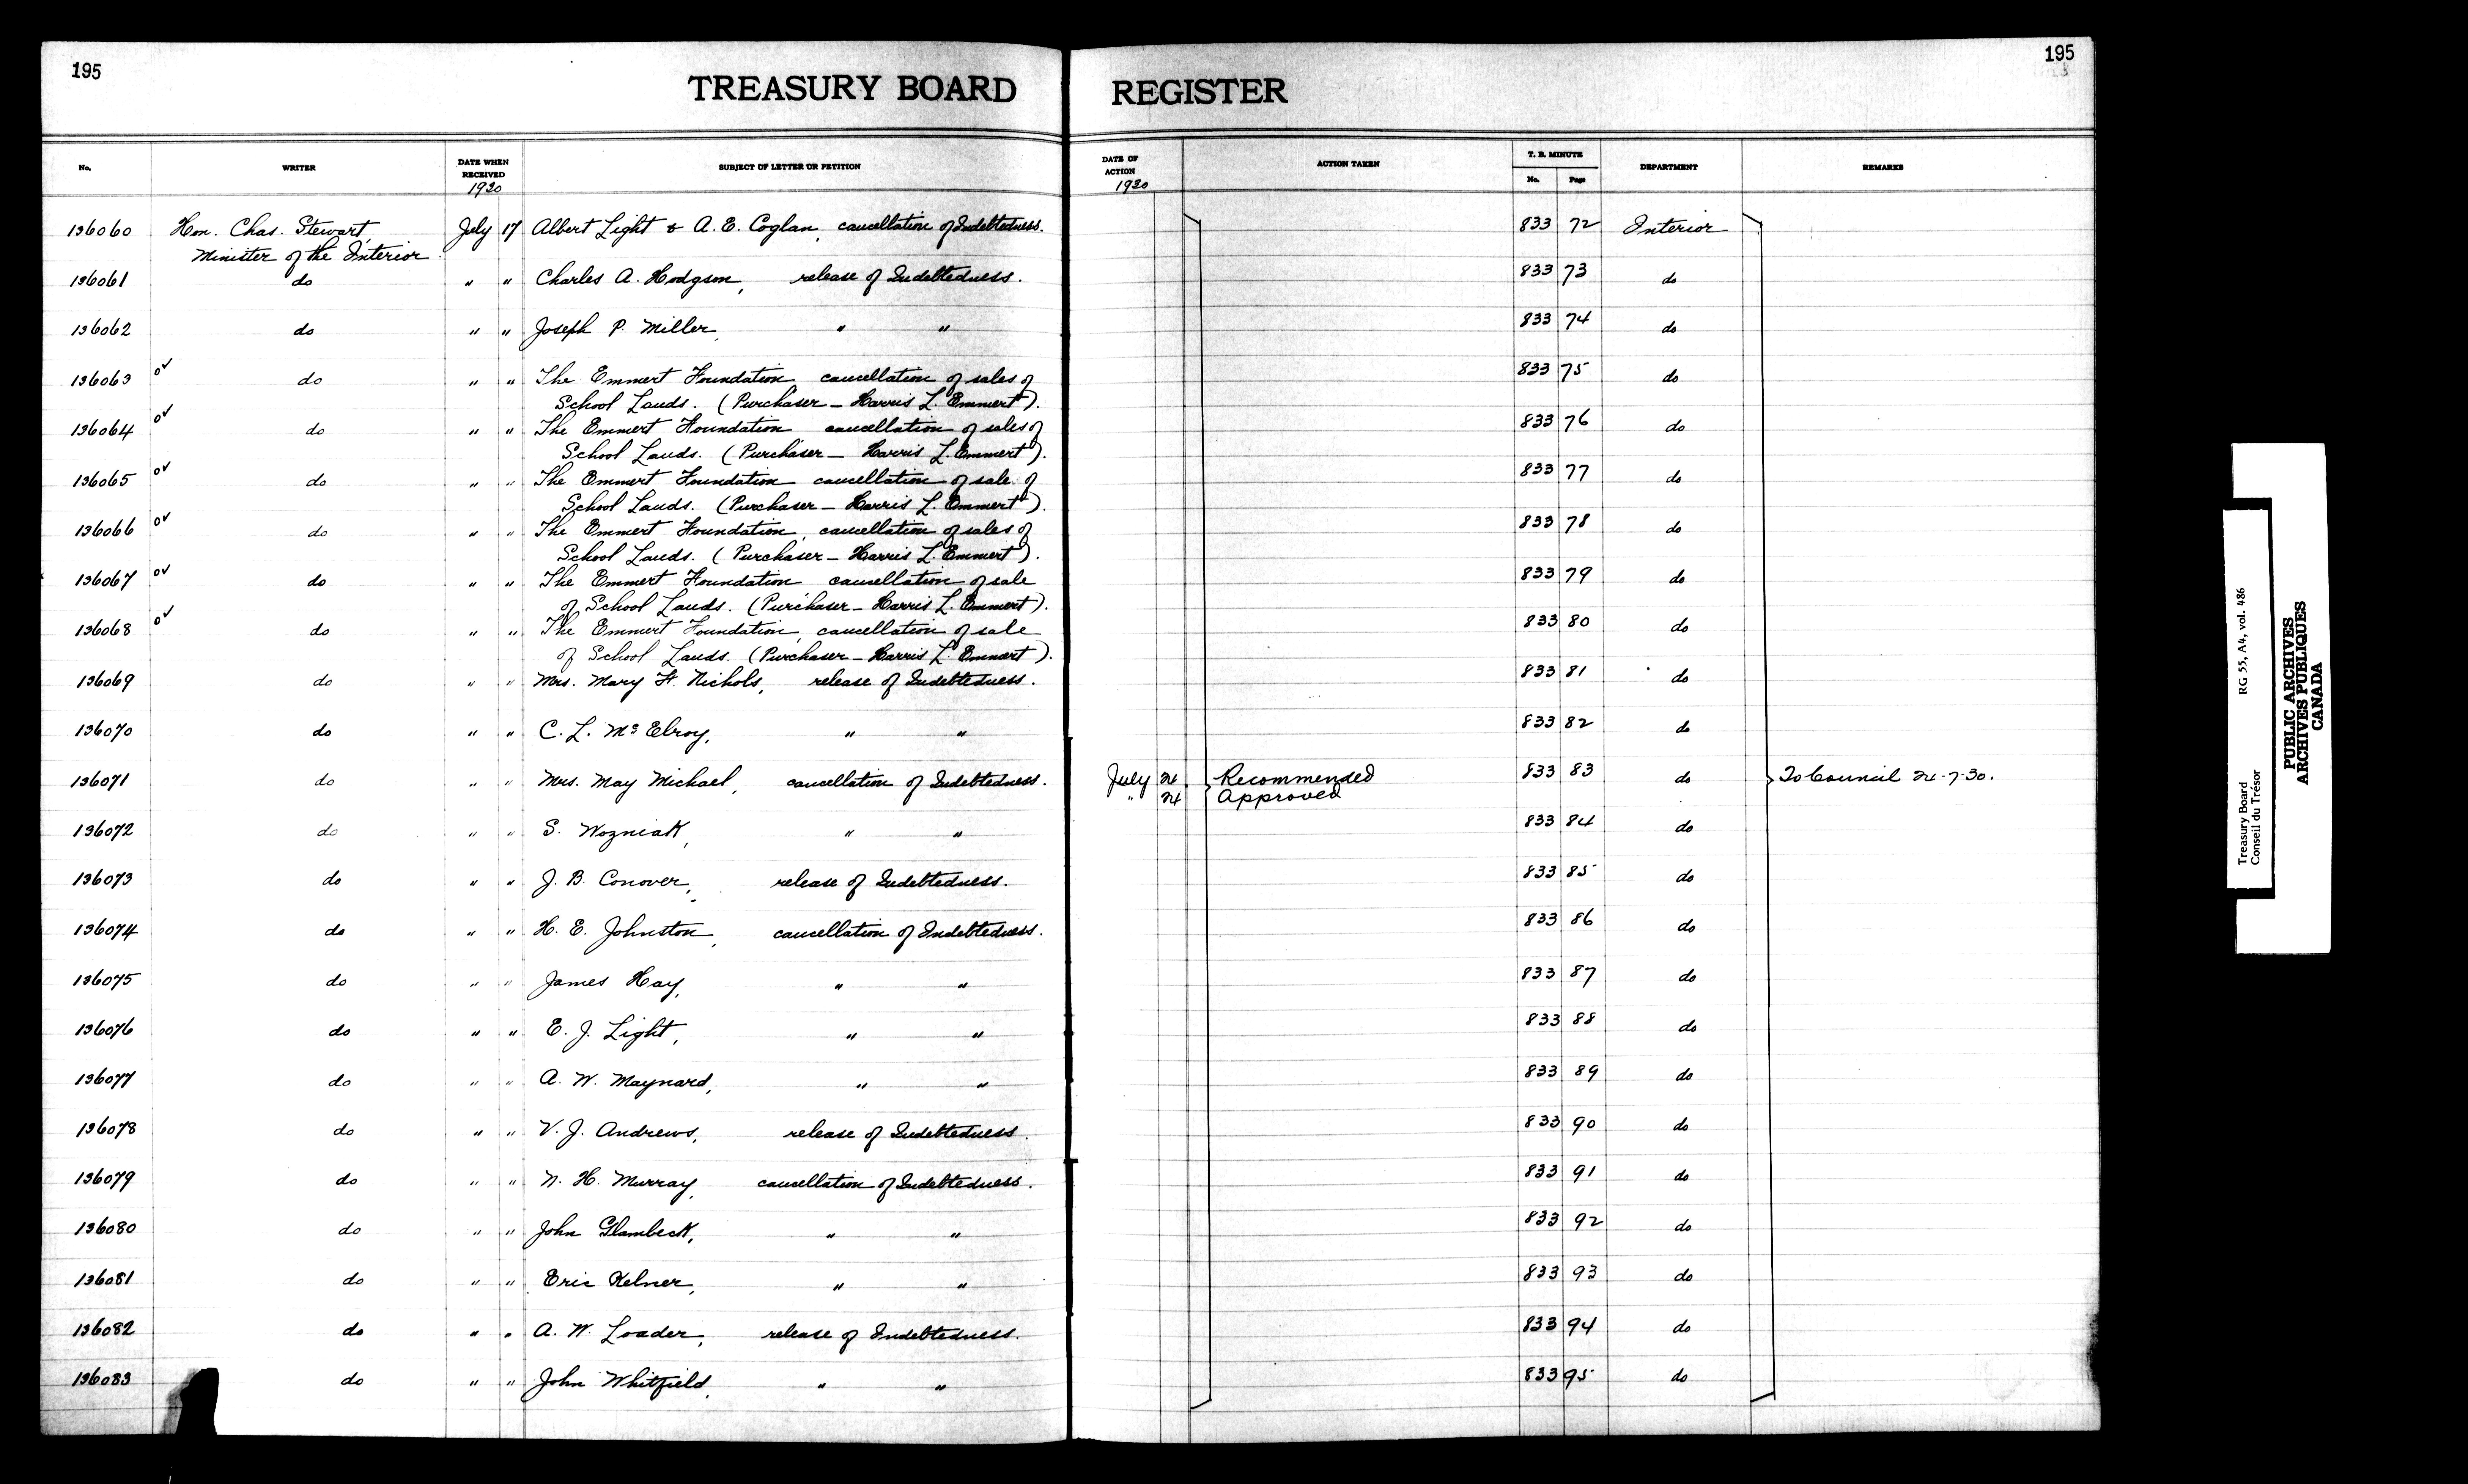 195
195
TREASURY BOARD REGISTER
No. WRITER DATE WHEN RECEIVED SUBJECT OF LETTER OR PETITION DATE OF ACTION ACTION TAKEN T. B. MINUTE No. Page DEPARTMENT REMARKS
1930 1930
136060 Hon. Chas. Stewart, July 17 Albert Light & A. E. Coglan, cancellation of Indebtedness. 833 72 Interior
Minister of the Interior
136061 do " " Charles A. Hodgson, release of Indebtedness. 833 73 do
136062 do " " Joseph P. Miller, " " 833 74 do
136063 o✓ do " " The Emmert Foundation, cancellation of sales of 833 75 do
School Lands. (Purchaser - Harris L. Emmert).
136064 o✓ do " " The Emmert Foundation cancellation of sales of 833 76 do
School Lands. (Purchaser - Harris L. Emmert).
136065 o✓ do " " The Emmert Foundation cancellation of sale of 833 77 do
School Lands. (Purchaser - Harris L. Emmert).
136066 o✓ do " " The Emmert Foundation, cancellation of sales of 833 78 do
School Lands. (Purchaser - Harris L. Emmert).
136067 o✓ do " " The Emmert Foundation cancellation of sale 833 79 do
of School Lands. (Purchaser - Harris L. Emmert).
136068 o✓ do " " The Emmert Foundation, cancellation of sale 833 80 do
of School Lands. (Purchaser - Harris L. Emmert).
136069 do " " Mrs. Mary H. Nichols, release of Indebtedness. 833 81 do
136070 do " " C. L. McElroy, " " 833 82 do
136071 do " " Mrs. May Michael, cancellation of Indebtedness. July 24 Recommended 833 83 do To Council 24-7-30.
" 24 Approved
136072 do " " S. Wozniak, " " 833 84 do
136073 do " " J. B. Conover, release of Indebtedness. 833 85 do
136074 do " " H. E. Johnston, cancellation of Indebtedness. 833 86 do
136075 do " " James Hay, " " 833 87 do
136076 do " " E. J. Light, " " 833 88 do
136077 do " " A. W. Maynard, " " 833 89 do
136078 do " " V. J. Andrews, release of Indebtedness. 833 90 do
136079 do " " N. H. Murray, cancellation of Indebtedness. 833 91 do
136080 do " " John Glambeck, " " 833 92 do
136081 do " " Eric Kelner, " " 833 93 do
136082 do " " A. W. Loader, release of Indebtedness. 833 94 do
136083 do " " John Whitfield, " " 833 95 do
Treasury Board RG 55, A4, vol. 486
Conseil du Trésor
PUBLIC ARCHIVES
ARCHIVES PUBLIQUES
CANADA